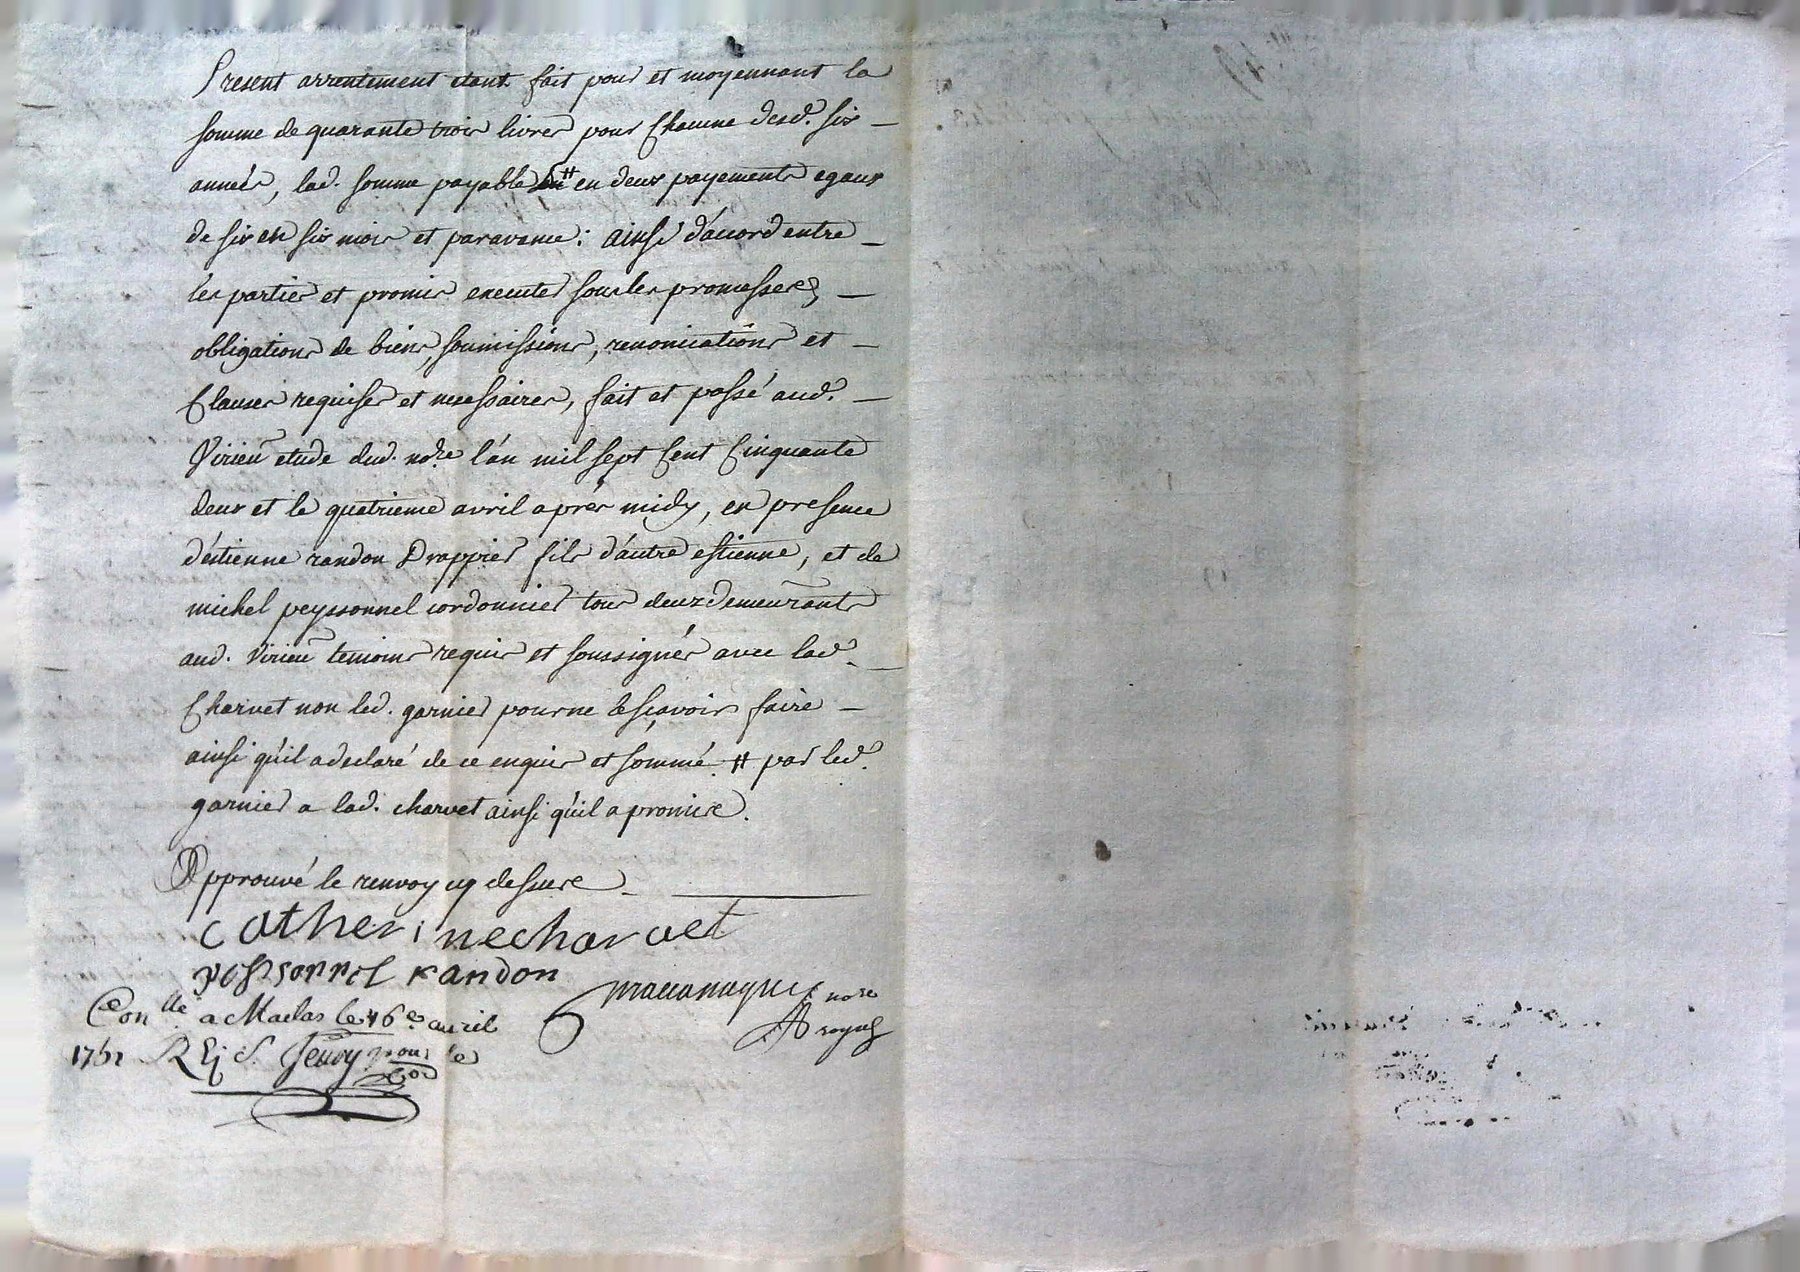 Present arrentement etant fait pour et moyennant la
somme de quarante trois livres pour Chacune desd. six
années, lad. somme payable # en deux payements egaux
de six en six mois et par avance: ainsi d'acord entre
les parties et promis executer sous les promesses,
obligations de biens, soumissions, renonciations et
Clauses requises et necessaires, fait et passé aud.
Virieu etude dud. nore l'an mil sept Cent Cinquante
deux et le quatrieme avril après midy, en presence
d'éstienne randon Drappier fils d'autre estienne, et de
michel peyssonnel cordonnier tous deux demeurants
aud. Virieu temoins requis et soussignés avec lad.
Charvet non led. garnier pour ne le sçavoir faire
ainsi qu'il a declaré de ce enquis et sommé. # par led.
garnier a lad. charvet ainsi qu'il a promis.
Approuvé le renvoy cy dessus
catherine charvet
randon
nore
Con.lle a Maclas le 16e avril